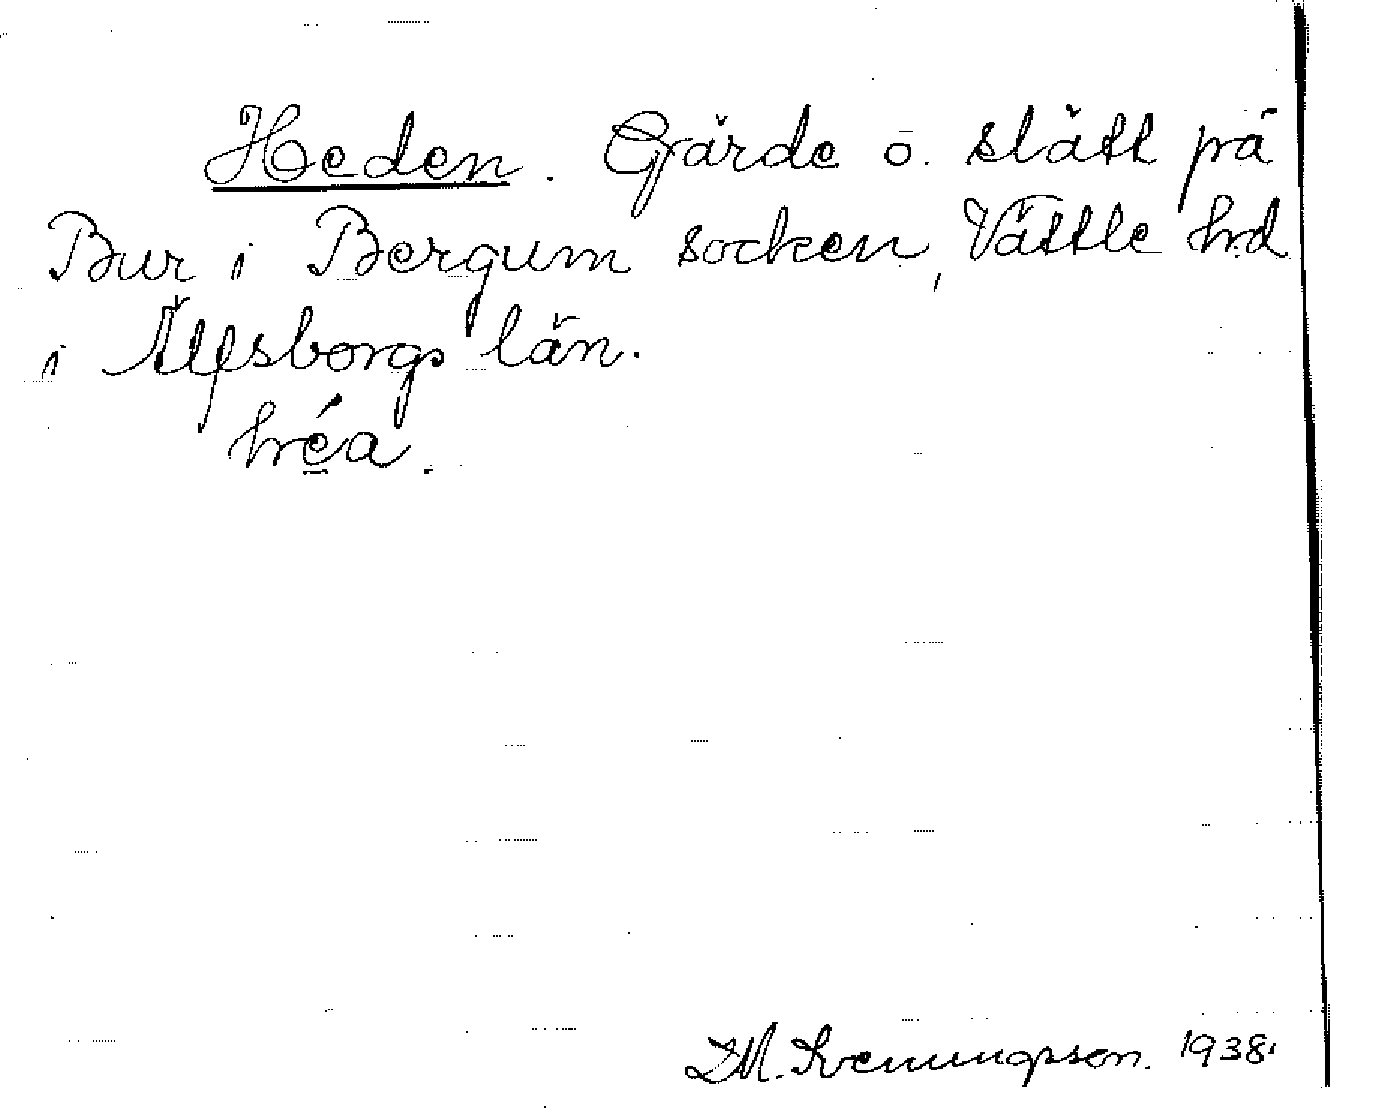 Heden. Gärde o. slått på
Bur i Bergum socken, Vättle hd
i Älfsborgs län.
hréa.
Svenungsson. 1938.